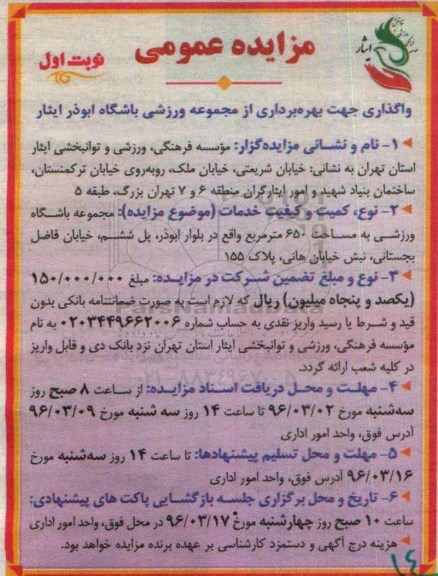 ایثار
مزایده عمومی
نوبت اول
واگذاری جهت بهره‌برداری از مجموعه ورزشی باشگاه ابوذر ایثار
۱- نام و نشانی مزایده‌گزار: مؤسسه فرهنگی، ورزشی و توانبخشی ایثار
استان تهران به نشانی: خیابان شریعتی، خیابان ملک، روبه‌روی خیابان ترکمنستان،
ساختمان بنیاد شهید و امور ایثارگران منطقه ۶ و ۷ تهران بزرگ، طبقه ۵
۲- نوع، کمیت و کیفیت خدمات (موضوع مزایده): مجموعه باشگاه
ورزشی به مساحت ۶۵۰ مترمربع واقع در بلوار ابوذر، پل ششم، خیابان فاضل
بجستانی، نبش خیابان هانی، پلاک ۱۵۵
۳- نوع و مبلغ تضمین شرکت در مزایده: مبلغ ۱۵۰/۰۰۰/۰۰۰
(یکصد و پنجاه میلیون) ریال که لازم است به صورت ضمانتنامه بانکی بدون
قید و شرط یا رسید واریز نقدی به حساب شماره ۰۲۰۳۴۴۹۶۶۲۰۰۶ به نام
مؤسسه فرهنگی، ورزشی و توانبخشی ایثار استان تهران نزد بانک دی و قابل واریز
در کلیه شعب ارائه گردد.
۴- مهلت و محل دریافت اسناد مزایده: از ساعت ۸ صبح روز
سه‌شنبه مورخ ۹۶/۰۳/۰۲ تا ساعت ۱۴ روز سه شنبه مورخ ۹۶/۰۳/۰۹
آدرس فوق، واحد امور اداری
۵- مهلت و محل تسلیم پیشنهادها: تا ساعت ۱۴ روز سه‌شنبه مورخ
۹۶/۰۳/۱۶ آدرس فوق، واحد امور اداری
۶- تاریخ و محل برگزاری جلسه بازگشایی پاکت های پیشنهادی:
ساعت ۱۰ صبح روز چهارشنبه مورخ ۹۶/۰۳/۱۷ در محل فوق، واحد امور اداری
هزینه درج آگهی و دستمزد کارشناسی بر عهده برنده مزایده خواهد بود.
۱۴